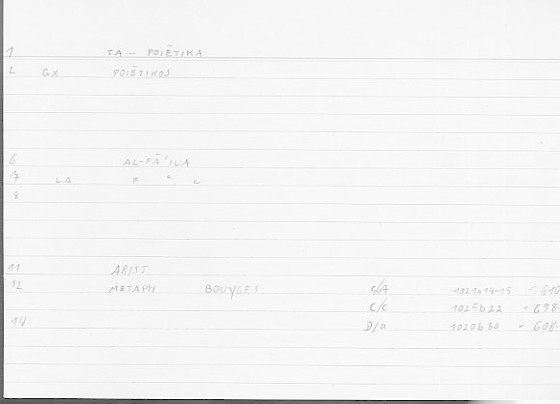 1 TA — POIĒTIKA
2 GX POIĒTIKOS
6 AL-FĀʿILA
7 LA F ʿ L
8
11 ARIST
12 METAPH BOUYGES C/A 1021a14-15 = 610
C/C 1025b22 = 698.
14 D/a 1020b30 = 608.